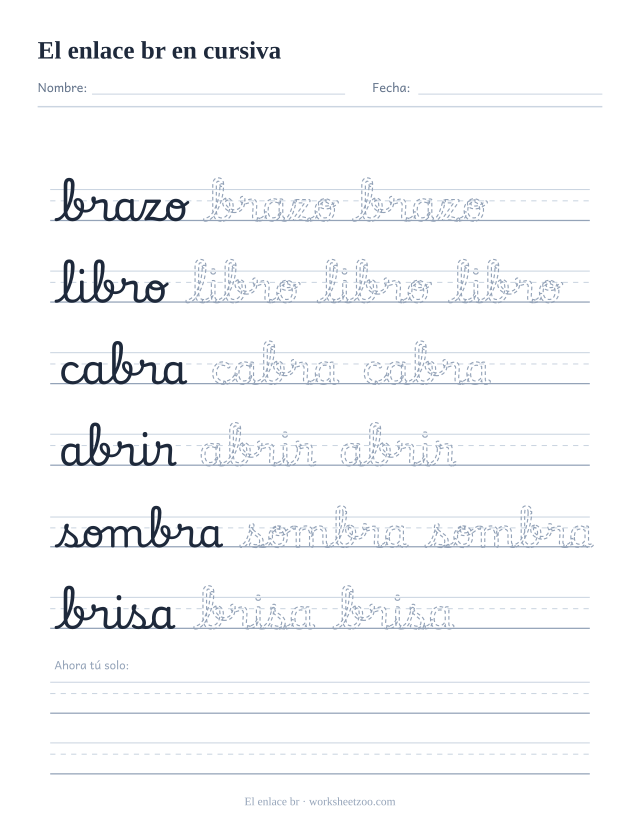 El enlace br en cursiva
Nombre: Fecha:
brazo brazo brazo
libro libro libro libro
cabra cabra cabra
abrir abrir abrir
sombra sombra sombra
brisa brisa brisa
Ahora tú solo:
El enlace br · worksheetzoo.com